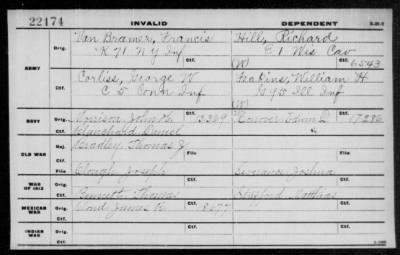 22174 INVALID DEPENDENT
Van Bramer, Francis Hill, Richard
Orig. K 71 N Y Inf E 1 Wis Cav
ARMY Ctf. (W) Ctf. 6543
Corliss, George W William H
Orig. C 5 Conn Inf G 98 Ill Inf
Ctf. (W) Ctf.
NAVY Orig. Morrison, John 13369 Edwin D. 17286
Ctf. Blanchard Daniel
OLD WAR Maj. Bradley, Thomas J.
File Clough, Joseph File Joshua
WAR OF 1812 Orig.
Ctf. Thomas Stafford Matthias
MEXICAN WAR Orig. James 8677
Ctf. Ctf.
INDIAN WAR Orig.
Ctf. Ctf.